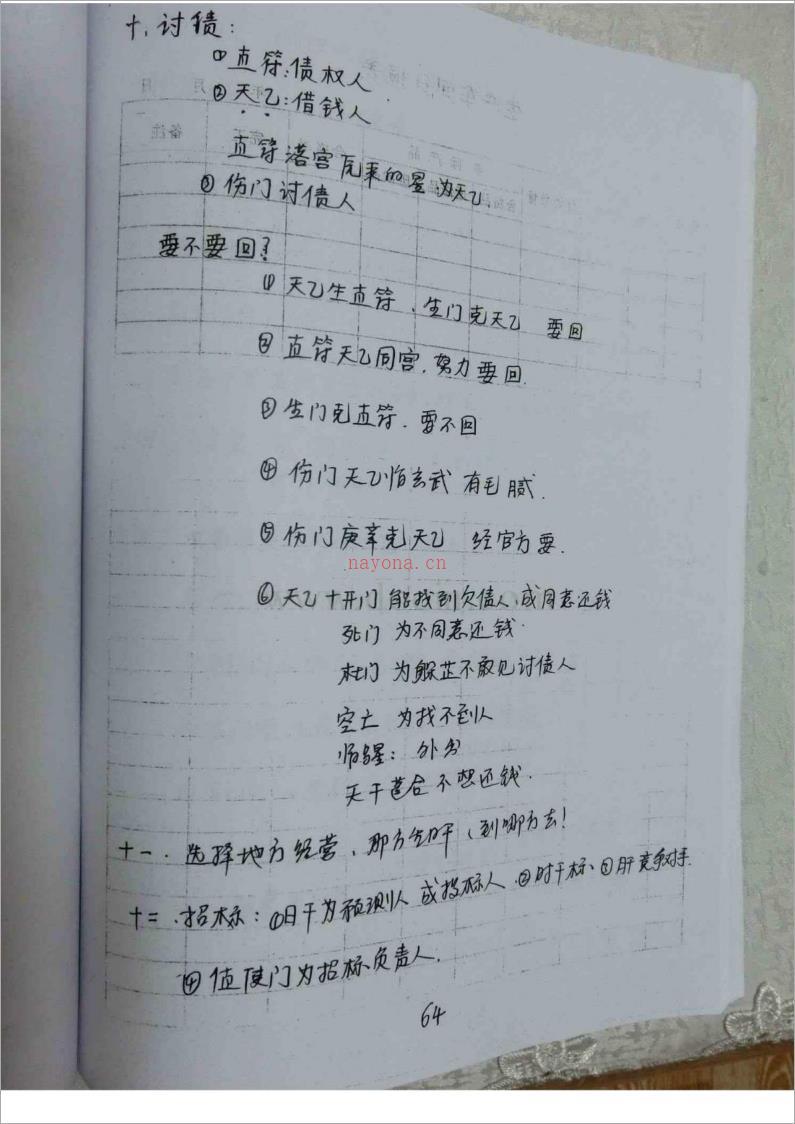 十、讨绩：
① 直符：债权人
② 天乙：借钱人
直符落宫原来的星为天乙.
③ 伤门讨债人
要不要回？
① 天乙生直符、生门克天乙 要回
② 直符天乙同宫.努力要回.
③ 生门克直符. 要不回
④ 伤门天乙临玄武 有毛腻.
⑤ 伤门庚辛克天乙 经官方要.
nayona.cn
⑥ 天乙十开门 能找到欠债人,或同意还钱
死门 为不同意还钱.
杜门 为躲茫不敢见讨债人
空亡 为找不到人
临星： 外
天干 合 不想还钱.
十一. 选择地方经营、那方生日干、到哪方去！
十二.招标：①日干为预测人 或投标人.②时干标.③月干竞争对手.
④ 值使门为招标负责人.
64
备注